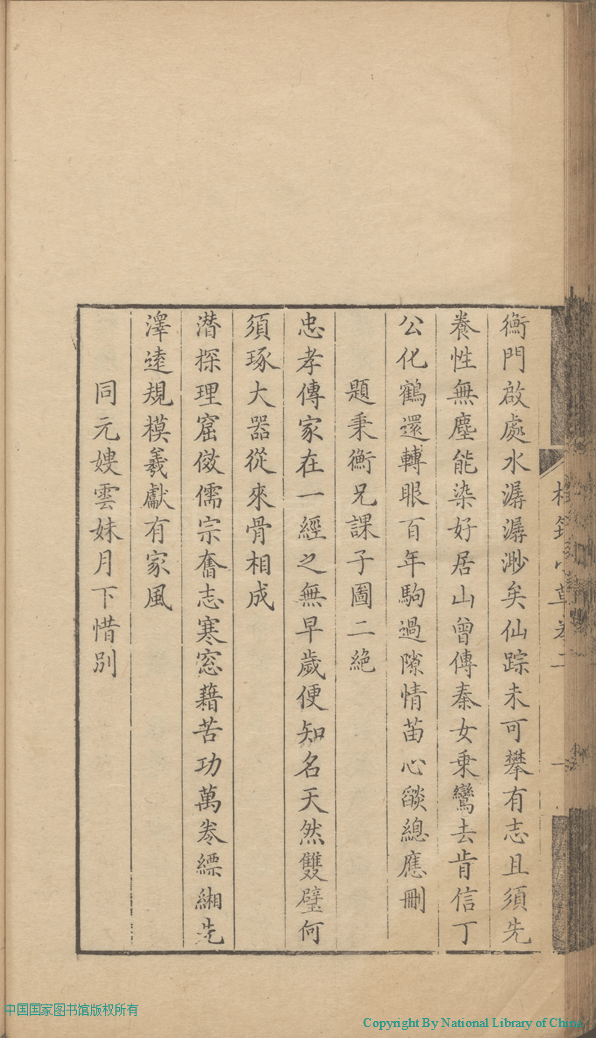 衡門啟處水潺潺渺矣仙踪未可攀有志且須先
養性無塵能染好居山曾傳秦女乘鸞去肯信丁
公化鶴還轉眼百年駒過隙情苗心燄總應刪
題秉衡兄課子圖二絕
忠孝傳家在一經之無早歲便知名天然雙璧何
須琢大器從來骨相成
潛探理窟傚儒宗奮志寒窓藉苦功萬卷縹緗先
澤遠規模羲獻有家風
同元嫂雲妹月下惜別
卷二
一
中国国家图书馆版权所有
Copyright By National Library of China